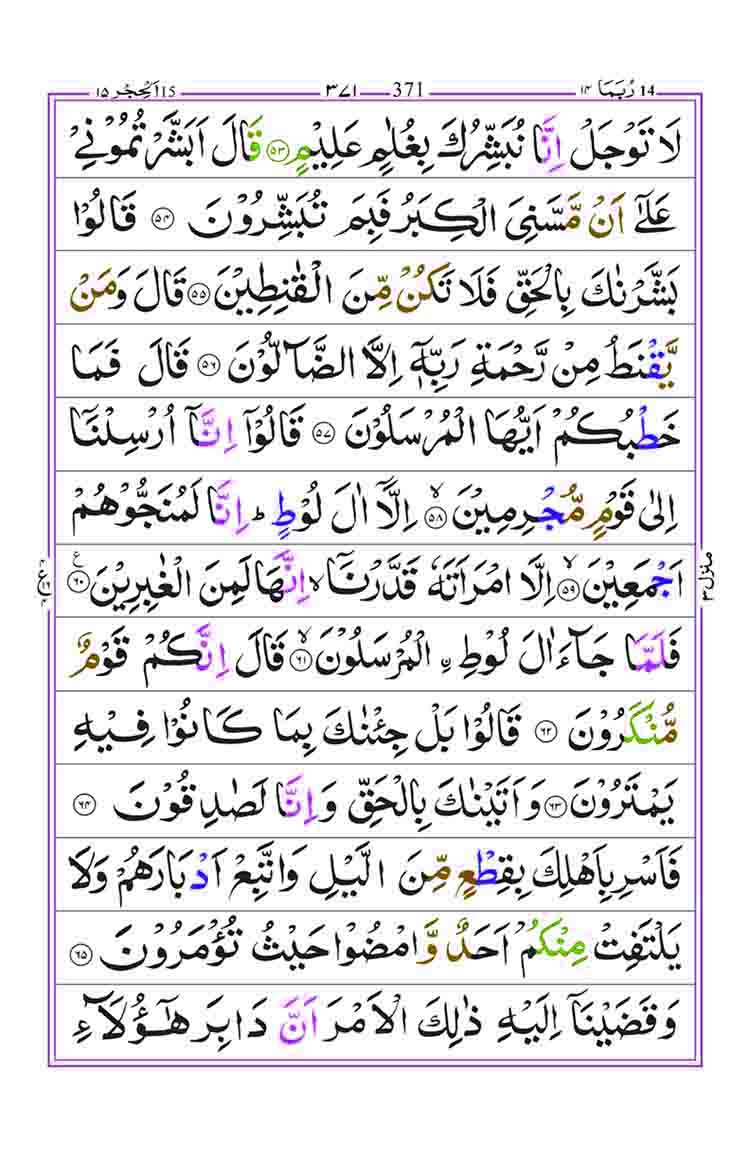 15 اَلْحِجْر ۱۵ ۳۷۱ 371 رُبَمَا ۱۴ 14
لَا تَوْجَلْ اِنَّا نُبَشِّرُكَ بِغُلٰمٍ عَلِيْمٍ ۵۳ قَالَ اَبَشَّرْتُمُوْنِيْ
عَلٰٓى اَنْ مَّسَّنِيَ الْكِبَرُ فَبِمَ تُبَشِّرُوْنَ ۵۴ قَالُوْا
بَشَّرْنٰكَ بِالْحَقِّ فَلَا تَكُنْ مِّنَ الْقٰنِطِيْنَ ۵۵ قَالَ وَمَنْ
يَّقْنَطُ مِنْ رَّحْمَةِ رَبِّهٖٓ اِلَّا الضَّآلُّوْنَ ۵۶ قَالَ فَمَا
خَطْبُكُمْ اَيُّهَا الْمُرْسَلُوْنَ ۵۷ قَالُوْٓا اِنَّآ اُرْسِلْنَآ
اِلٰى قَوْمٍ مُّجْرِمِيْنَ ۙ۵۸ اِلَّآ اٰلَ لُوْطٍ ؕ اِنَّا لَمُنَجُّوْهُمْ
اَجْمَعِيْنَ ۙ۵۹ اِلَّا امْرَاَتَهٗ قَدَّرْنَآ ۙ اِنَّهَا لَمِنَ الْغٰبِرِيْنَ ۶۰ ع
منزل ۳
فَلَمَّا جَآءَ اٰلَ لُوْطِ ۨ الْمُرْسَلُوْنَ ۙ۶۱ قَالَ اِنَّكُمْ قَوْمٌ
مُّنْكَرُوْنَ ۶۲ قَالُوْا بَلْ جِئْنٰكَ بِمَا كَانُوْا فِيْهِ
يَمْتَرُوْنَ ۶۳ وَاَتَيْنٰكَ بِالْحَقِّ وَاِنَّا لَصٰدِقُوْنَ ۶۴
فَاَسْرِ بِاَهْلِكَ بِقِطْعٍ مِّنَ الَّيْلِ وَاتَّبِعْ اَدْبَارَهُمْ وَلَا
يَلْتَفِتْ مِنْكُمْ اَحَدٌ وَّامْضُوْا حَيْثُ تُؤْمَرُوْنَ ۶۵
وَقَضَيْنَآ اِلَيْهِ ذٰلِكَ الْاَمْرَ اَنَّ دَابِرَ هٰٓؤُلَآءِ